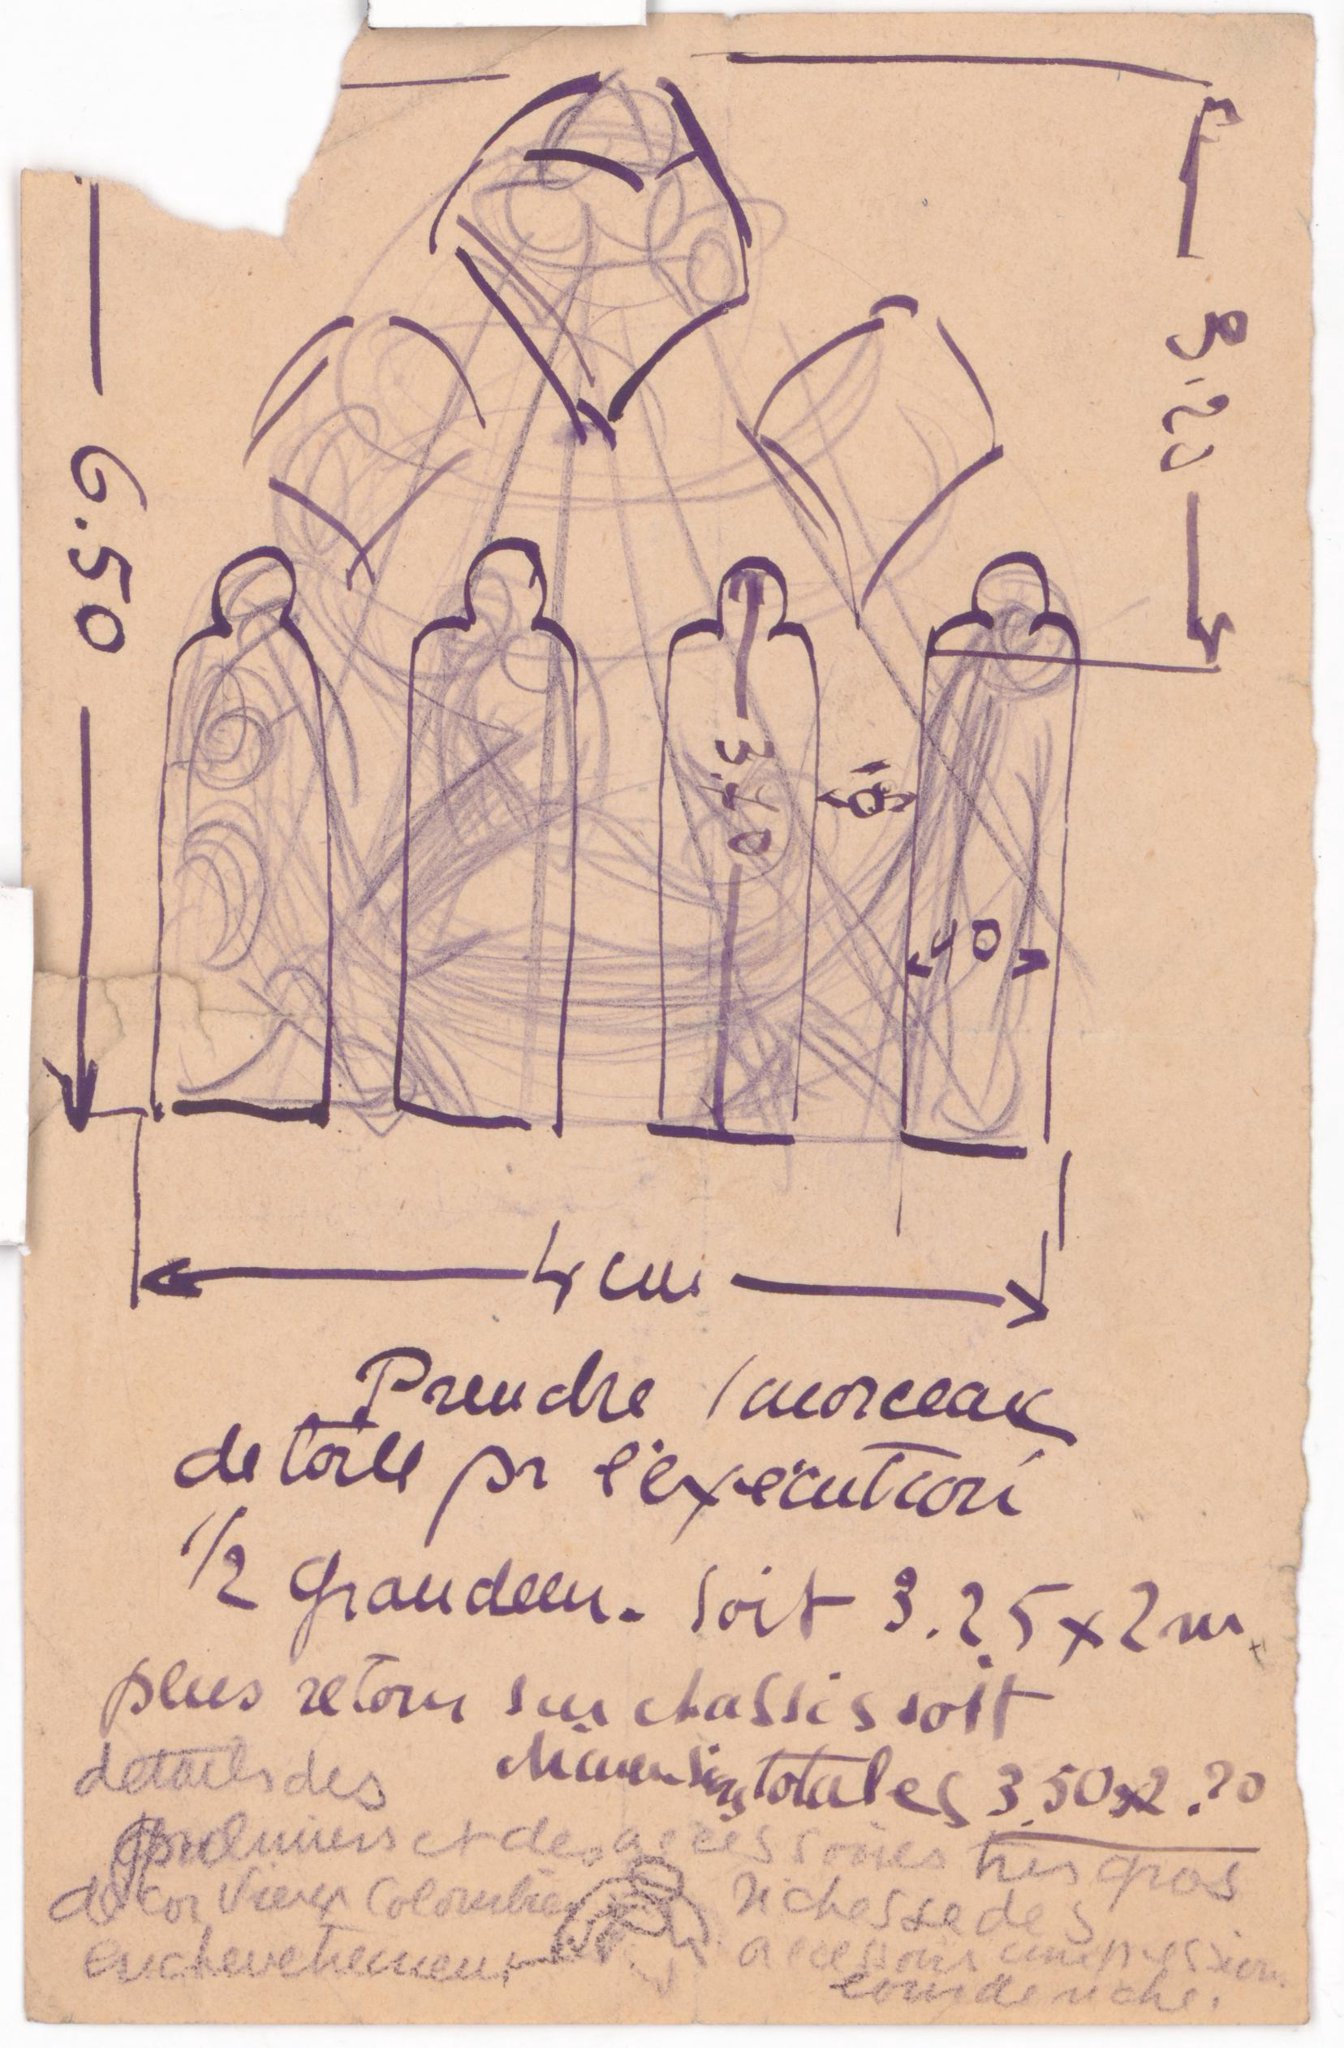 3.20
6.50
3.40
40
4 m
Prendre 1 morceau
de toile pr l'execution
1/2 grandeur. soit 3.25 x 2 m
plus retour sur chassis soit
dimensions totales 3.50 x 2.20
details des
et des accessoires très gros
decor Vieux Colombier
richesse des
enchevetrement
accessoires impression
riche.